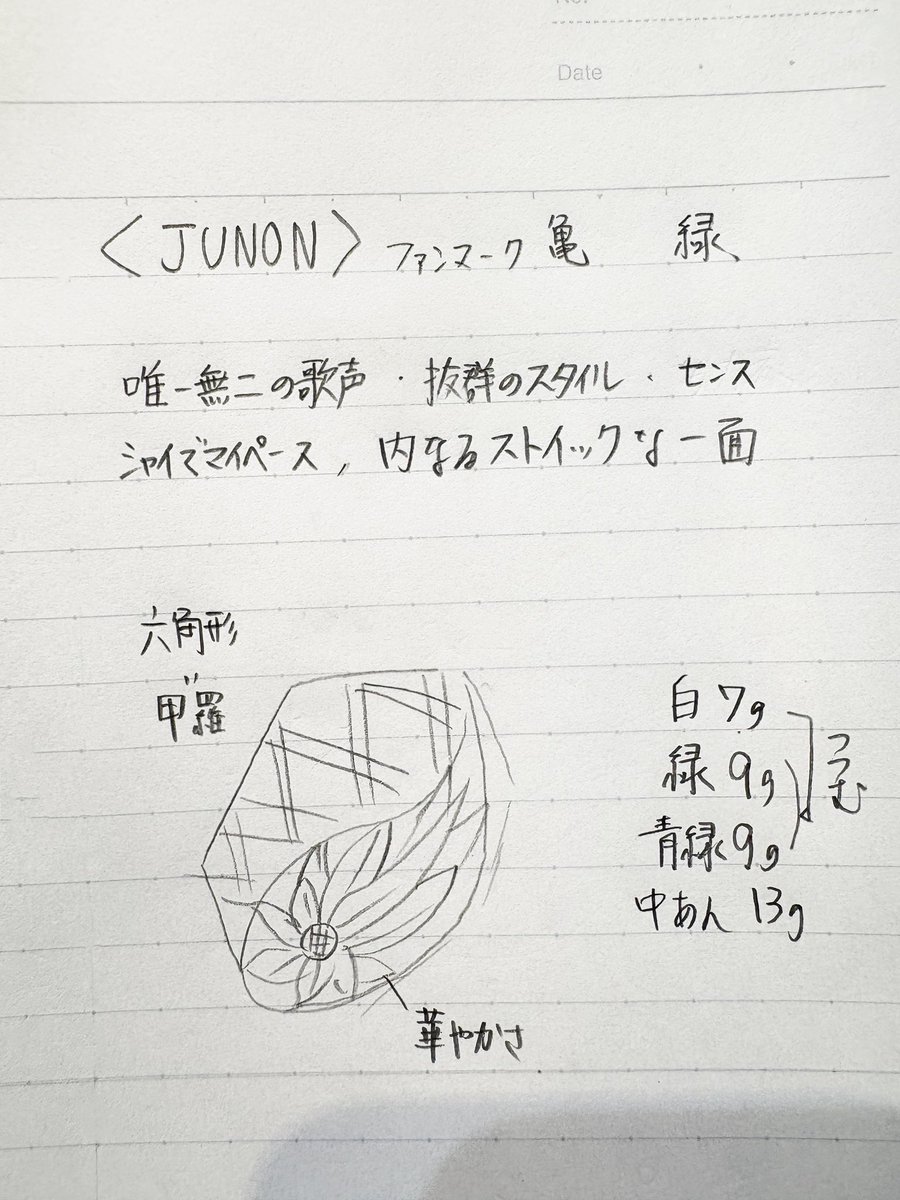 No.
Date
〈JUNON〉 ファンマーク 亀 緑
唯一無二の歌声・抜群のスタイル・センス
シャイでマイペース, 内なるストイックな一面
六角形
〃
甲羅
白 7g
緑 9g
青緑 9g
つつむ
中あん 13g
華やかさ